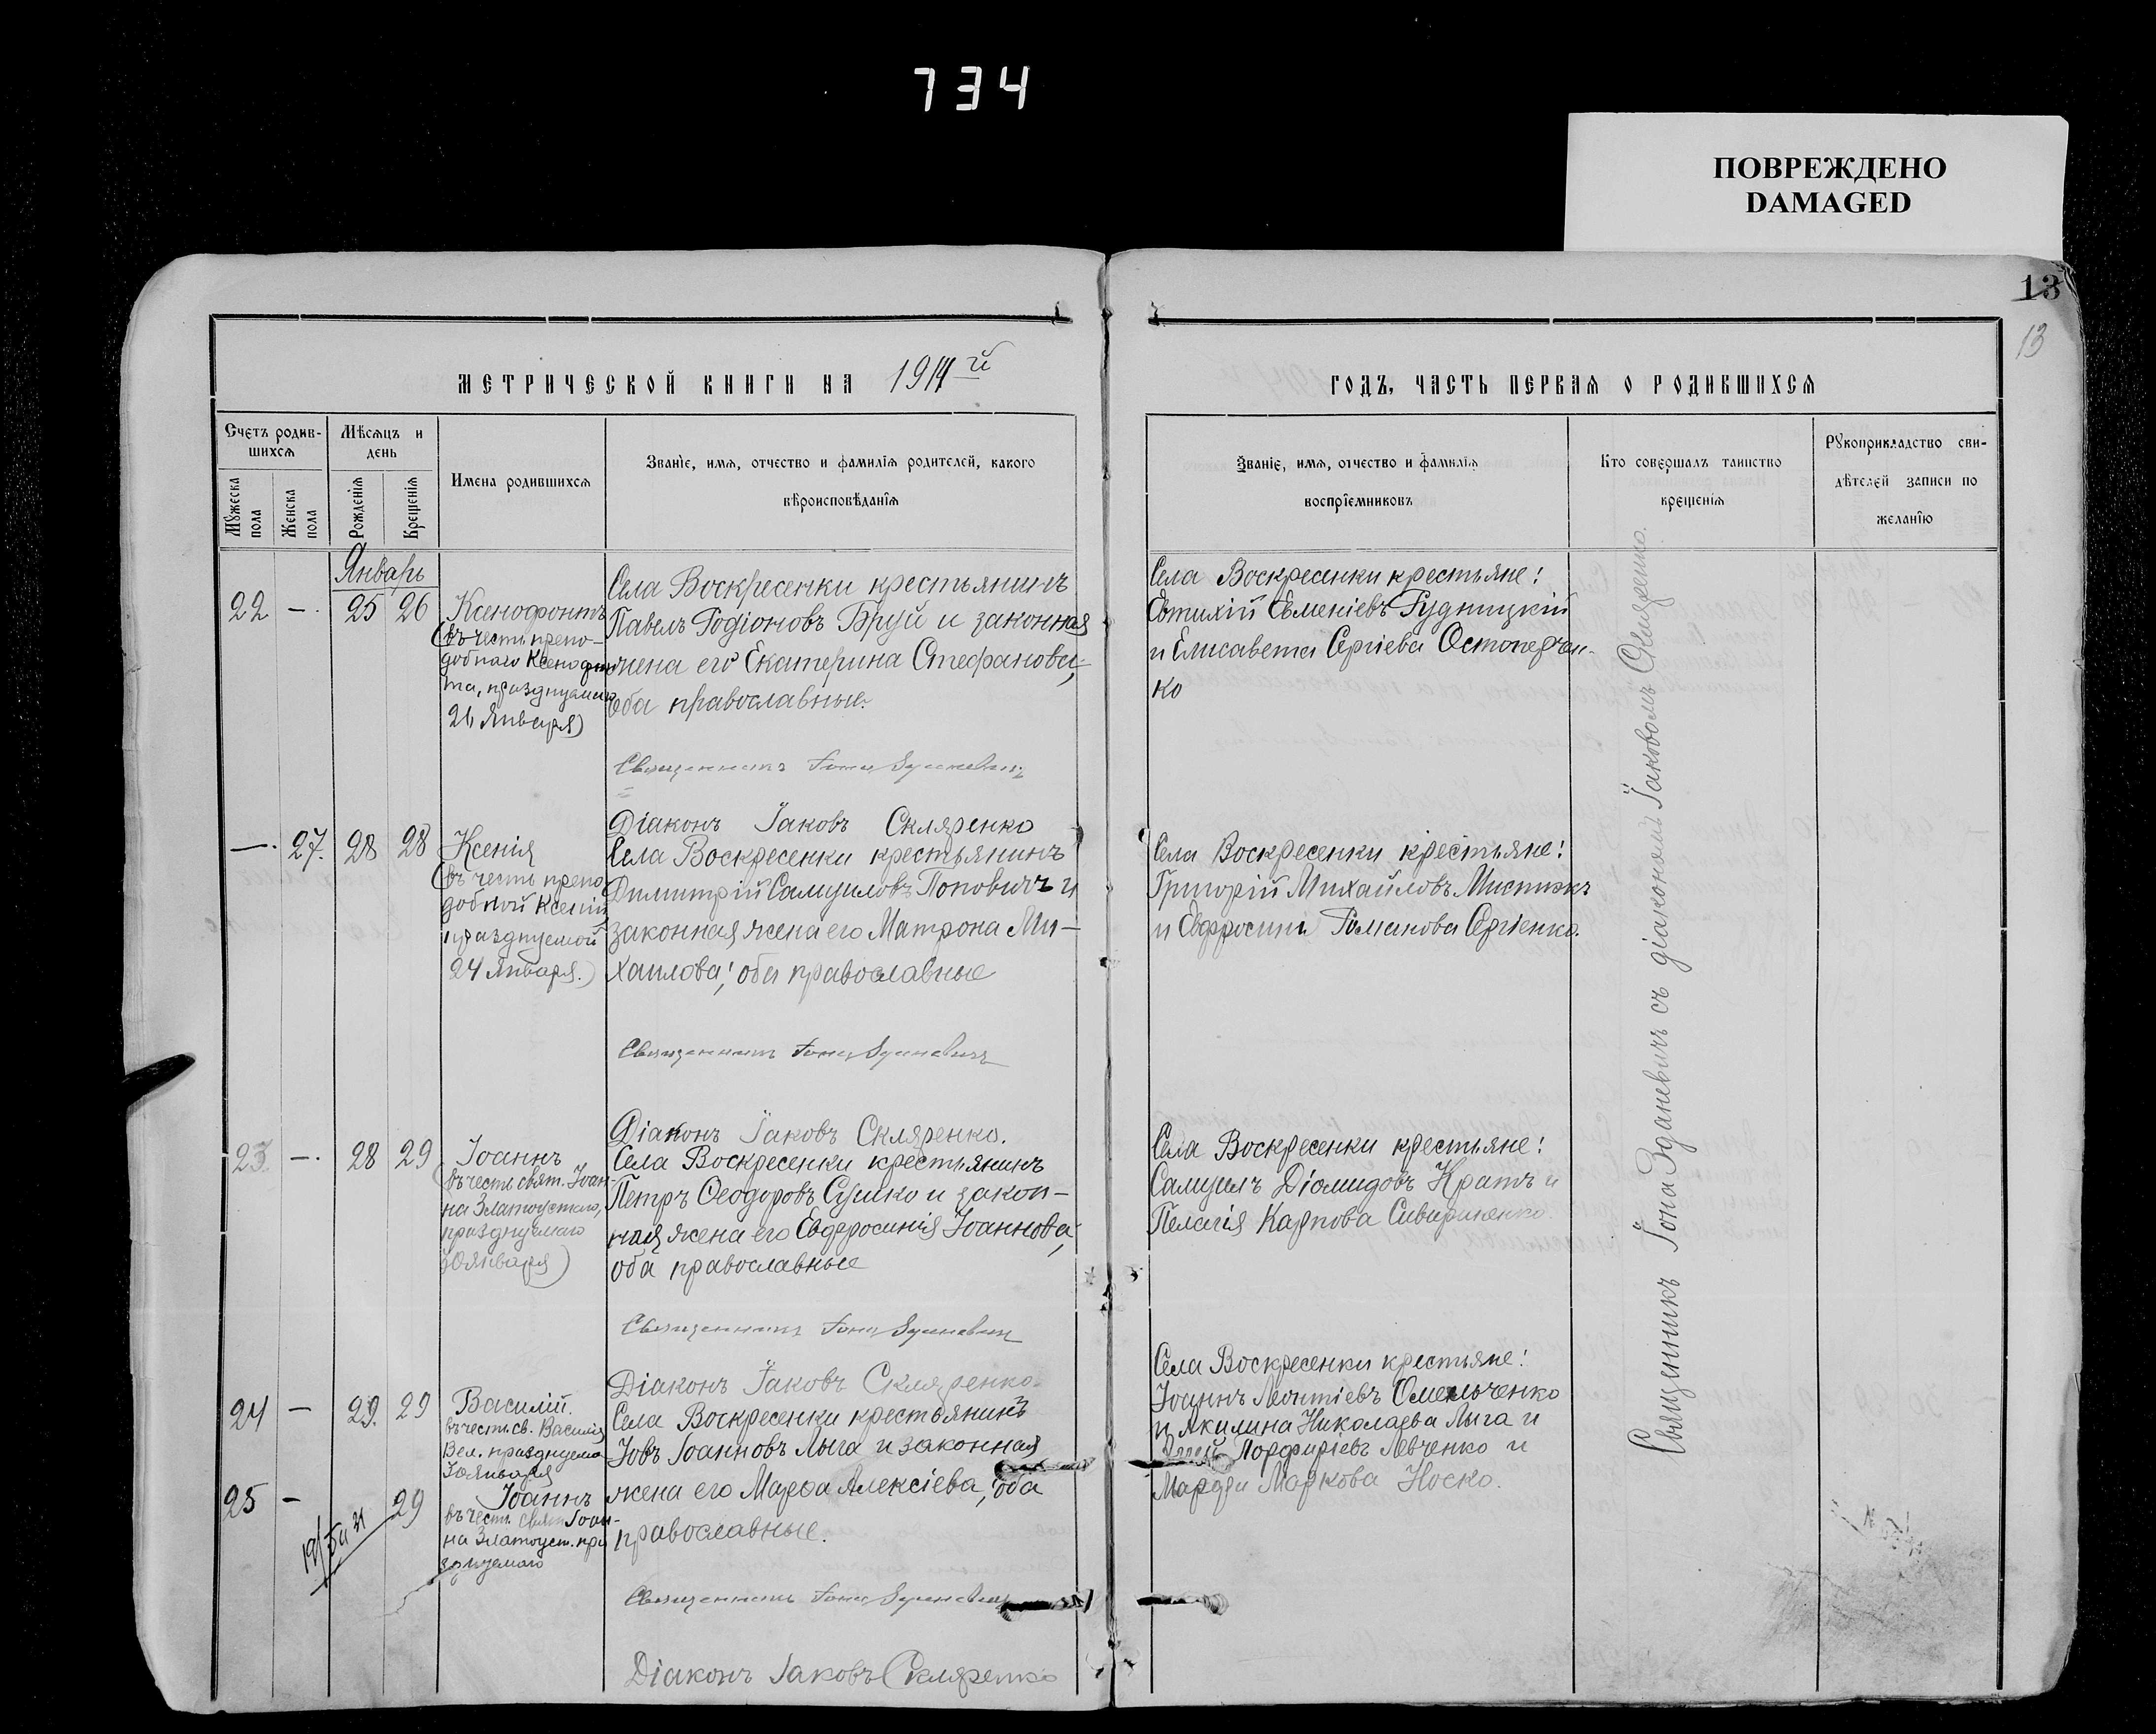 734
ПОВРЕЖДЕНО
DAMAGED
13
13
МЕТРИЧЕСКОЙ КНИГИ НА 1914 й
ГОДЪ, ЧАСТЬ ПЕРВАЯ О РОДИВШИХСЯ
Счетъ родив-
шихся
Мужеска пола
Женска пола
Мѣсяцъ и
день
Рожденія
Крещенія
Имена родившихся
Званіе, имя, отчество и фамилія родителей, какого
вѣроисповѣданія
Званіе, имя, отчество и фамилія
воспріемниковъ
Кто совершалъ таинство
крещенія
Рукоприкладство сви-
дѣтелей записи по
желанію
Январь
22 — 25 26
Ксенофонтъ
(въ честь препо-
добнаго Ксенофон
та, празднуемаго
26 Января)
Села Воскресенки крестьянинъ
Павелъ Родіоновъ Бруй и законная
жена его Екатерина Стефанова,
оба православные.
Священникъ Іона Зданевичъ
Діаконъ Іаковъ Скляренко
Села Воскресенки крестьяне:
Евтихій Евменіевъ Рудницкій
и Елисавета Сергіева Остоперчен-
ко
— 27. 28 28
Ксенія
(въ честь препо
добной Ксеніи
празднуемой
24 Января.)
Села Воскресенки крестьянинъ
Димитрій Самуиловъ Поповичъ и
законная жена его Матрона Ми-
хаилова, оба православные
Священникъ Іона Зданевичъ
Діаконъ Іаковъ Скляренко.
Села Воскресенки крестьяне:
Григорій Михайловъ
и Евфросинія Романова Сергіенко.
23. — 28 29
Іоаннъ
(въ честь свят. Іоан-
на Златоустаго,
празднуемаго
30 января)
Села Воскресенки крестьянинъ
Петръ Ѳеодоровъ Сушко и закон-
ная жена его Евфросинія Іоаннова,
оба православные
Священникъ Іона Зданевичъ
Діаконъ Іаковъ Скляренко
Села Воскресенки крестьяне:
Самуилъ Діомидовъ Кратъ и
Пелагія Карпова
24 — 29. 29
Василій.
въ честь св. Василія
Вел. празднуема
30 января
25 — 29
Іоаннъ
въ честь свят Іоан-
на Златоуст. пра
зднуемаго
Села Воскресенки крестьянинъ
Іовъ Іоанновъ Лыга и законная
жена его Марѳа Алексіева, оба
православные.
Священникъ Іона Зданевичъ
Діаконъ Іаковъ Скляренко
Села Воскресенки крестьяне:
Іоаннъ Леонтіевъ Омельченко
и Акилина Николаева Лыга и
Порфиріевъ Левченко и
Маркова Носко.
Священникъ Іона Зданевичъ съ діакономъ Іаковомъ Скляренко.